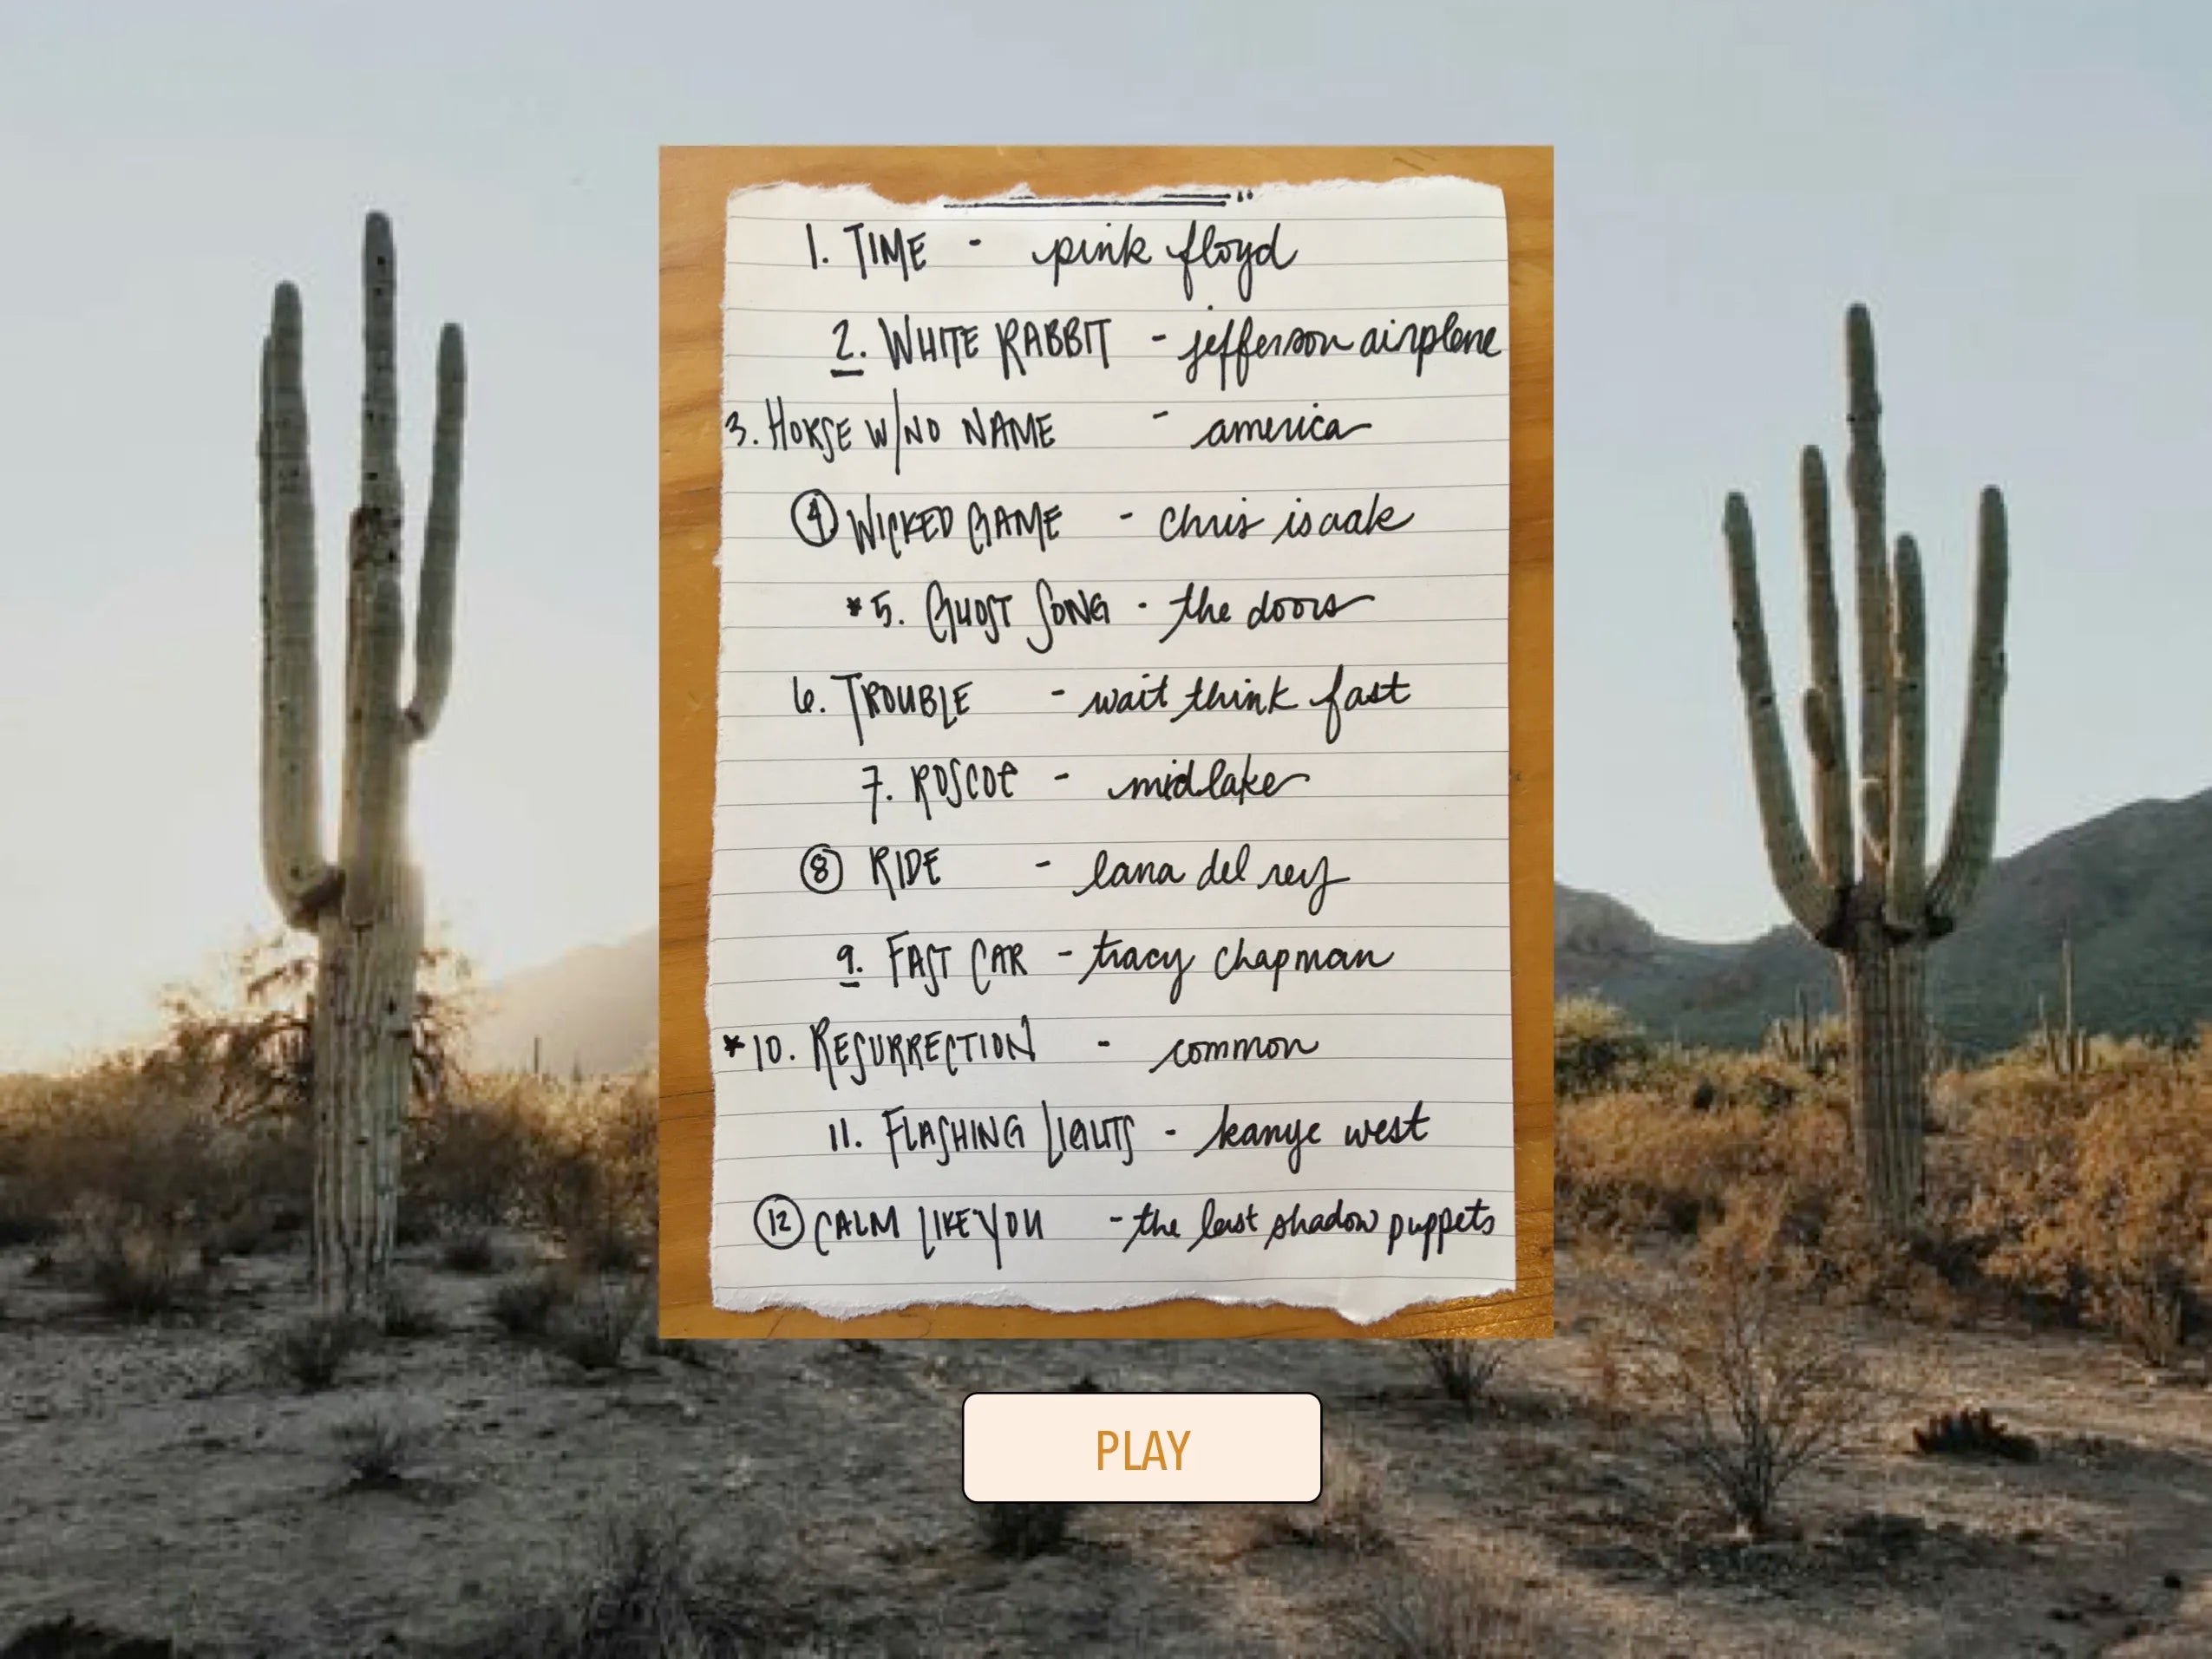 1. TIME - pink floyd
2. WHITE RABBIT - jefferson airplane
3. HORSE W/NO NAME - america
4 WICKED GAME - chris isaak
*5. GHOST SONG - the doors
6. TROUBLE - wait think fast
7. ROSCOe - midlake
8 RIDE - lana del rey
9. FAST CAR - tracy chapman
*10. RESURRECTION - common
11. FLASHING LIGHTS - kanye west
12 CALM LIKE YOU - the last shadow puppets
PLAY